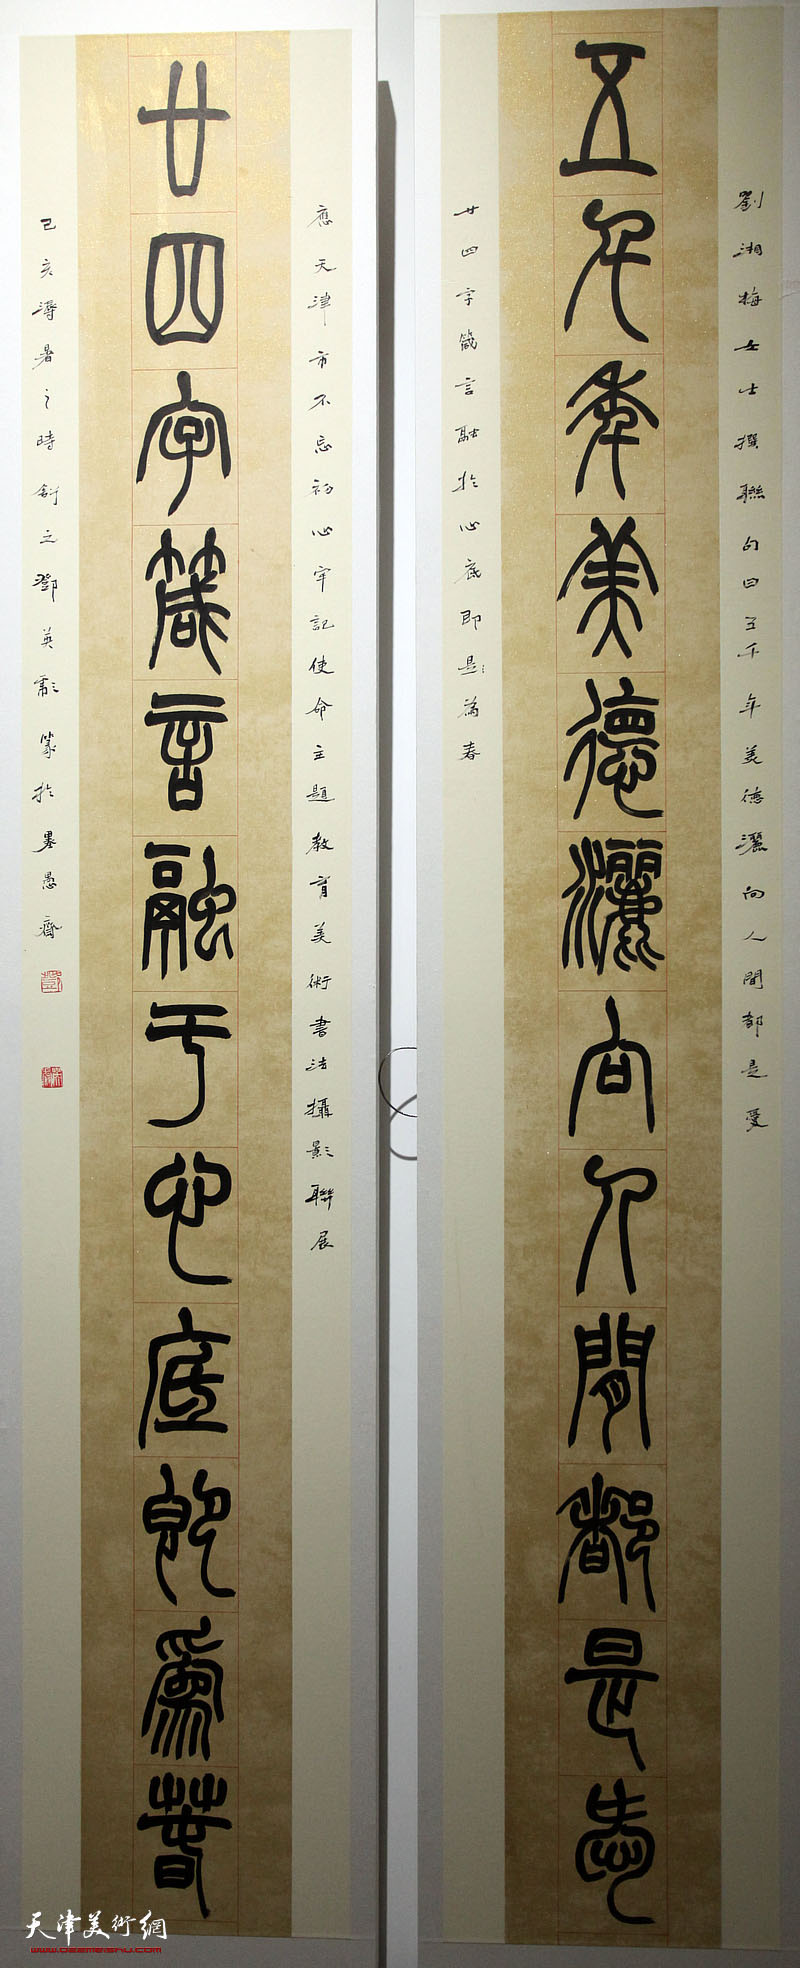 劉湘梅女士撰聯句曰五千年美德灑向人間都是愛
五千年美德灑向人間都是愛
廿四字箴言融於心底即是為春
應天津市不忘初心牢記使命主題教育美術書法攝影聯展
廿四字箴言融于心底即為春
己亥溽暑之時舒之鄧英霸篆於墨愚齋
天津美術網